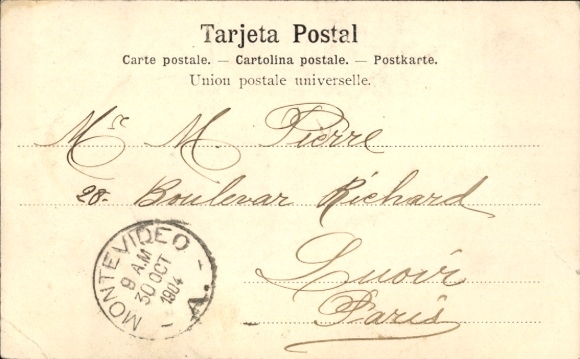 Tarjeta Postal
Carte postale. — Cartolina postale. — Postkarte.
Union postale universelle.
Mr M. Pierre
28- Boulevar Richard
Luoir
Paris
MONTEVIDEO - A. -
9 A.M
30 OCT
1904